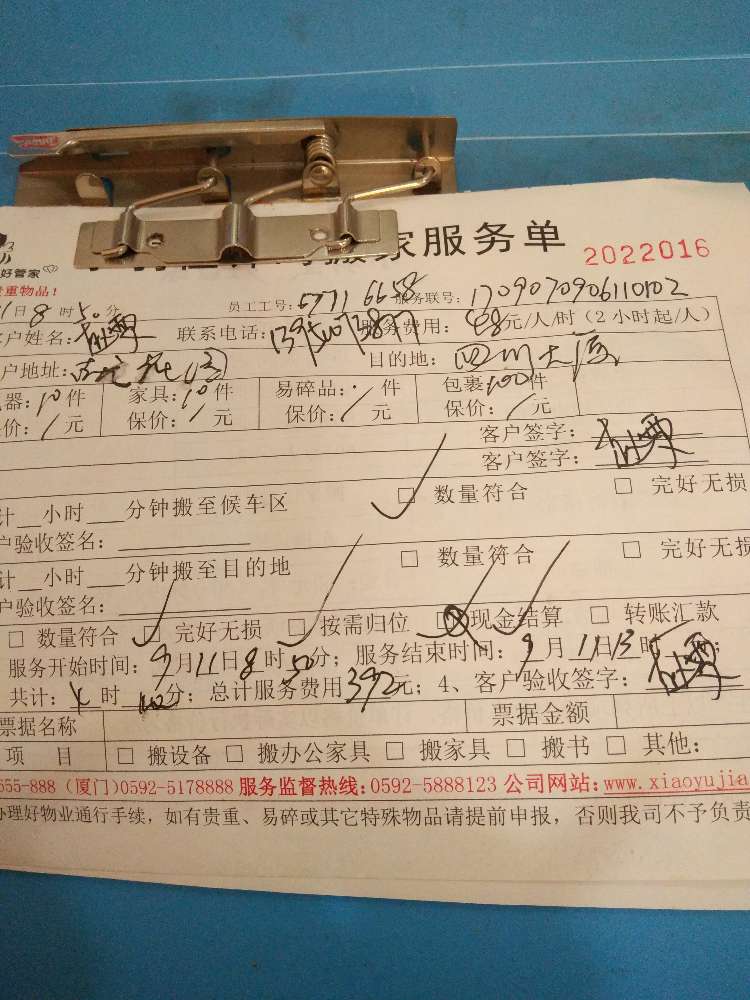 搬家服务单 2022016
好管家
贵重物品!
1日8时50分 员工工号: 服务联号: 1709070906110102
客户姓名: 联系电话: 服务费用: 48元/人/时(2小时起/人)
户地址: 目的地: 四川大厦
器:10件 家具:10件 易碎品: 件 包裹100件
价:/元 保价:/元 保价:/元 保价:/元
客户签字:
客户签字:
计__小时___分钟搬至候车区 □ 数量符合 □ 完好无损
户验收签名:
计__小时___分钟搬至目的地 □ 数量符合 □ 完好无损
户验收签名:
□ 数量符合 □ 完好无损 □ 按需归位 □ 现金结算 □ 转账汇款
服务开始时间:9月11日8时50分; 服务结束时间:9月11日13时
共计:4时 分; 总计服务费用392元; 4、客户验收签字:
票据名称 票据金额
项 目 □ 搬设备 □ 搬办公家具 □ 搬家具 □ 搬书 □ 其他:
655-888 (厦门)0592-5178888 服务监督热线:0592-5888123 公司网站:www.xiaoyujia
办理好物业通行手续,如有贵重、易碎或其它特殊物品请提前申报,否则我司不予负责